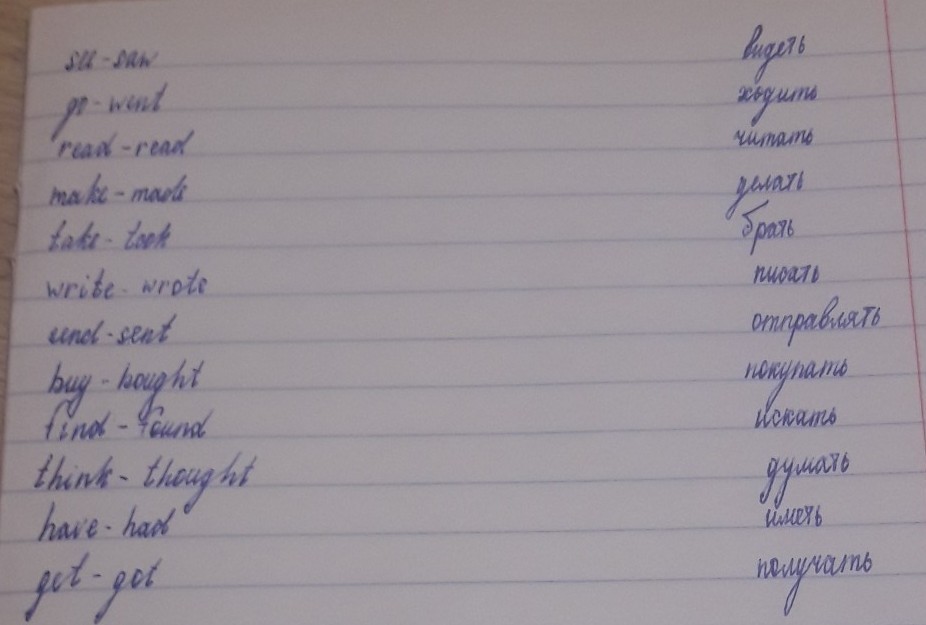 see-saw видеть
go-went ходить
read-read читать
make-made делать
take-took брать
write-wrote писать
send-sent отправлять
buy-bought покупать
find-found искать
think-thought думать
have-had иметь
get-got получать